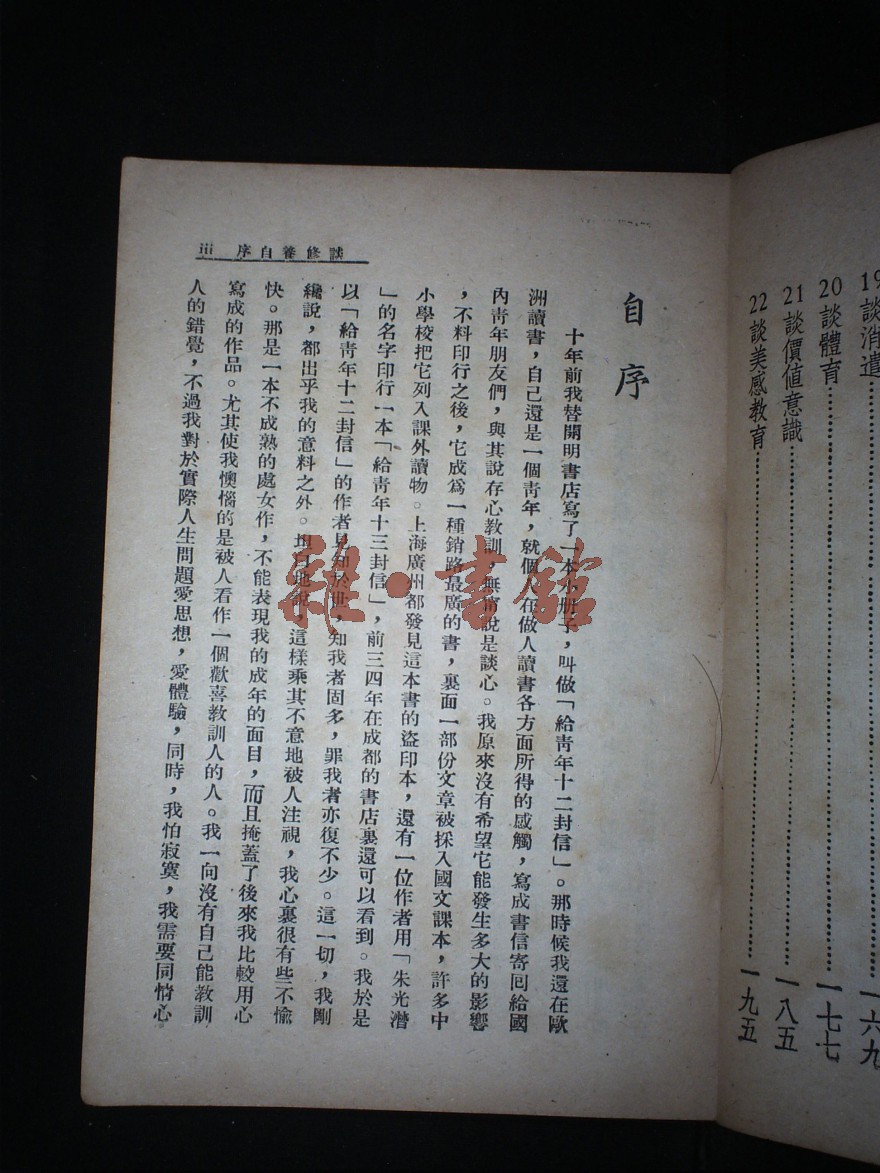 19談消遣……一六九
20談體育……一七七
21談價值意識……一八五
22談美感教育……一九五
談修養自序 iii
自序
十年前我替開明書店寫了一本小册子，叫做「給靑年十二封信」。那時候我還在歐
洲讀書，自己還是一個靑年，就個人在做人讀書各方面所得的感觸，寫成書信寄回給國
內靑年朋友們，與其說存心教訓，無甯說是談心。我原來沒有希望它能發生多大的影響
，不料印行之後，它成爲一種銷路最廣的書，裏面一部份文章被採入國文課本，許多中
小學校把它列入課外讀物。上海廣州都發見這本書的盜印本，還有一位作者用「朱光潛
」的名字印行一本「給靑年十三封信」，前三四年在成都的書店裏還可以看到。我於是
以「給靑年十二封信」的作者見知於世，知我者固多，罪我者亦復不少。這一切，我剛
纔說，都出乎我的意料之外。坦白地說，這樣乘其不意地被人注視，我心裏很有些不愉
快。那是一本不成熟的處女作，不能表現我的成年的面目，而且掩蓋了後來我比較用心
寫成的作品。尤其使我懊惱的是被人看作一個歡喜教訓人的人。我一向沒有自己能教訓
人的錯覺，不過我對於實際人生問題愛思想，愛體驗，同時，我怕寂寞，我需要同情心
雜·書館